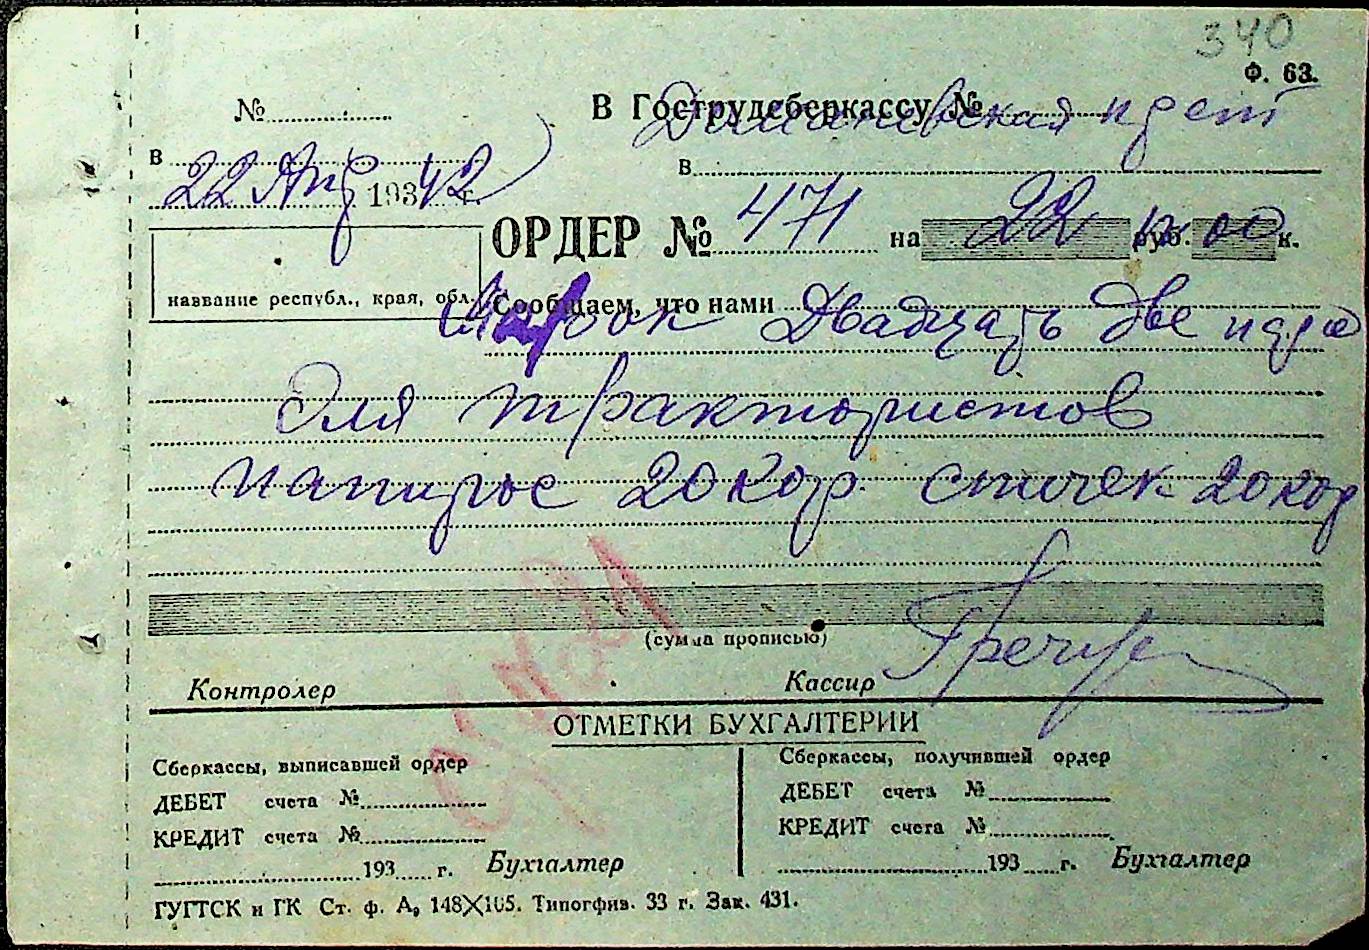 340
Ф. 63.
№ В Гострудсберкассу №
в
в
22 Апр 193 42 г.
ОРДЕР № 471 на 22 руб. 00 к.
название республ., края, обл. Сообщаем, что нами
Двадцать две
для трактористов
папирос 20 кор. спичек 20 кор
(сумма прописью)
Контролер Кассир
ОТМЕТКИ БУХГАЛТЕРИИ
Сберкассы, выписавшей ордер
ДЕБЕТ счета №
КРЕДИТ счета №
193 г. Бухгалтер
Сберкассы, получившей ордер
ДЕБЕТ счета №
КРЕДИТ счета №
193 г. Бухгалтер
ГУГТСК и ГК Ст. ф. А, 148X105. Типогфив. 33 г. Зак. 431.